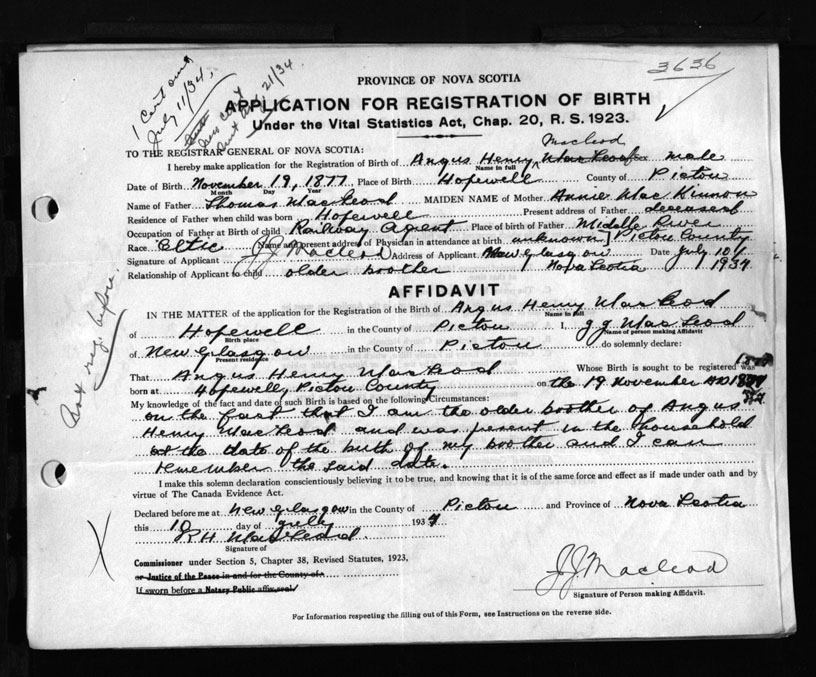 3636
1 Cert om
July 11/34,
21/34
PROVINCE OF NOVA SCOTIA
APPLICATION FOR REGISTRATION OF BIRTH
Under the Vital Statistics Act, Chap. 20, R. S. 1923.
TO THE REGISTRAR GENERAL OF NOVA SCOTIA:
Macleod
I hereby make application for the Registration of Birth of Angus Henry MacLeod male
Name in full
Date of Birth November 19, 1877 Place of Birth Hopewell County of Pictou
Month Day Year
Name of Father Thomas MacLeod MAIDEN NAME of Mother Annie MacKinnon
Residence of Father when child was born Hopewell Present address of Father deceased
Occupation of Father at Birth of child Railway Agent Place of birth of Father Middle River
Race Celtic (Name and present address of Physician in attendance at birth unknown) Pictou County
Signature of Applicant J J Macleod Address of Applicant New Glasgow Date July 10/
Relationship of Applicant to child older brother Nova Scotia 1934
Not reg. before.
AFFIDAVIT
IN THE MATTER of the application for the Registration of the Birth of Angus Henry MacLeod
Name in full
of Hopewell in the County of Pictou I, J J MacLeod
Birth place Name of person making Affidavit
of New Glasgow in the County of Pictou do solemnly declare:
Present residence
That Angus Henry MacLeod Whose Birth is sought to be registered was
born at Hopewell, Pictou County on the 19 November AD 1877
My knowledge of the fact and date of such Birth is based on the following Circumstances:
on the fact that I am the older brother of Angus
Henry MacLeod and was present in the household
at the date of the birth of my brother and I can
remember the said date.
I make this solemn declaration conscientiously believing it to be true, and knowing that it is of the same force and effect as if made under oath and by
virtue of The Canada Evidence Act.
Declared before me at New Glasgow in the County of Pictou and Province of Nova Scotia
this 10 day of July 1934
R H MacLeod
Signature of
Commissioner under Section 5, Chapter 38, Revised Statutes, 1923,
or Justice of the Peace in and for the County of
If sworn before a Notary Public affix seal
J.J. Macleod
Signature of Person making Affidavit.
For Information respecting the filling out of this Form, see Instructions on the reverse side.